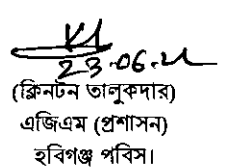 23.06.22
(ক্লিনটন তালুকদার)
এজিএম (প্রশাসন)
হবিগঞ্জ পবিস।